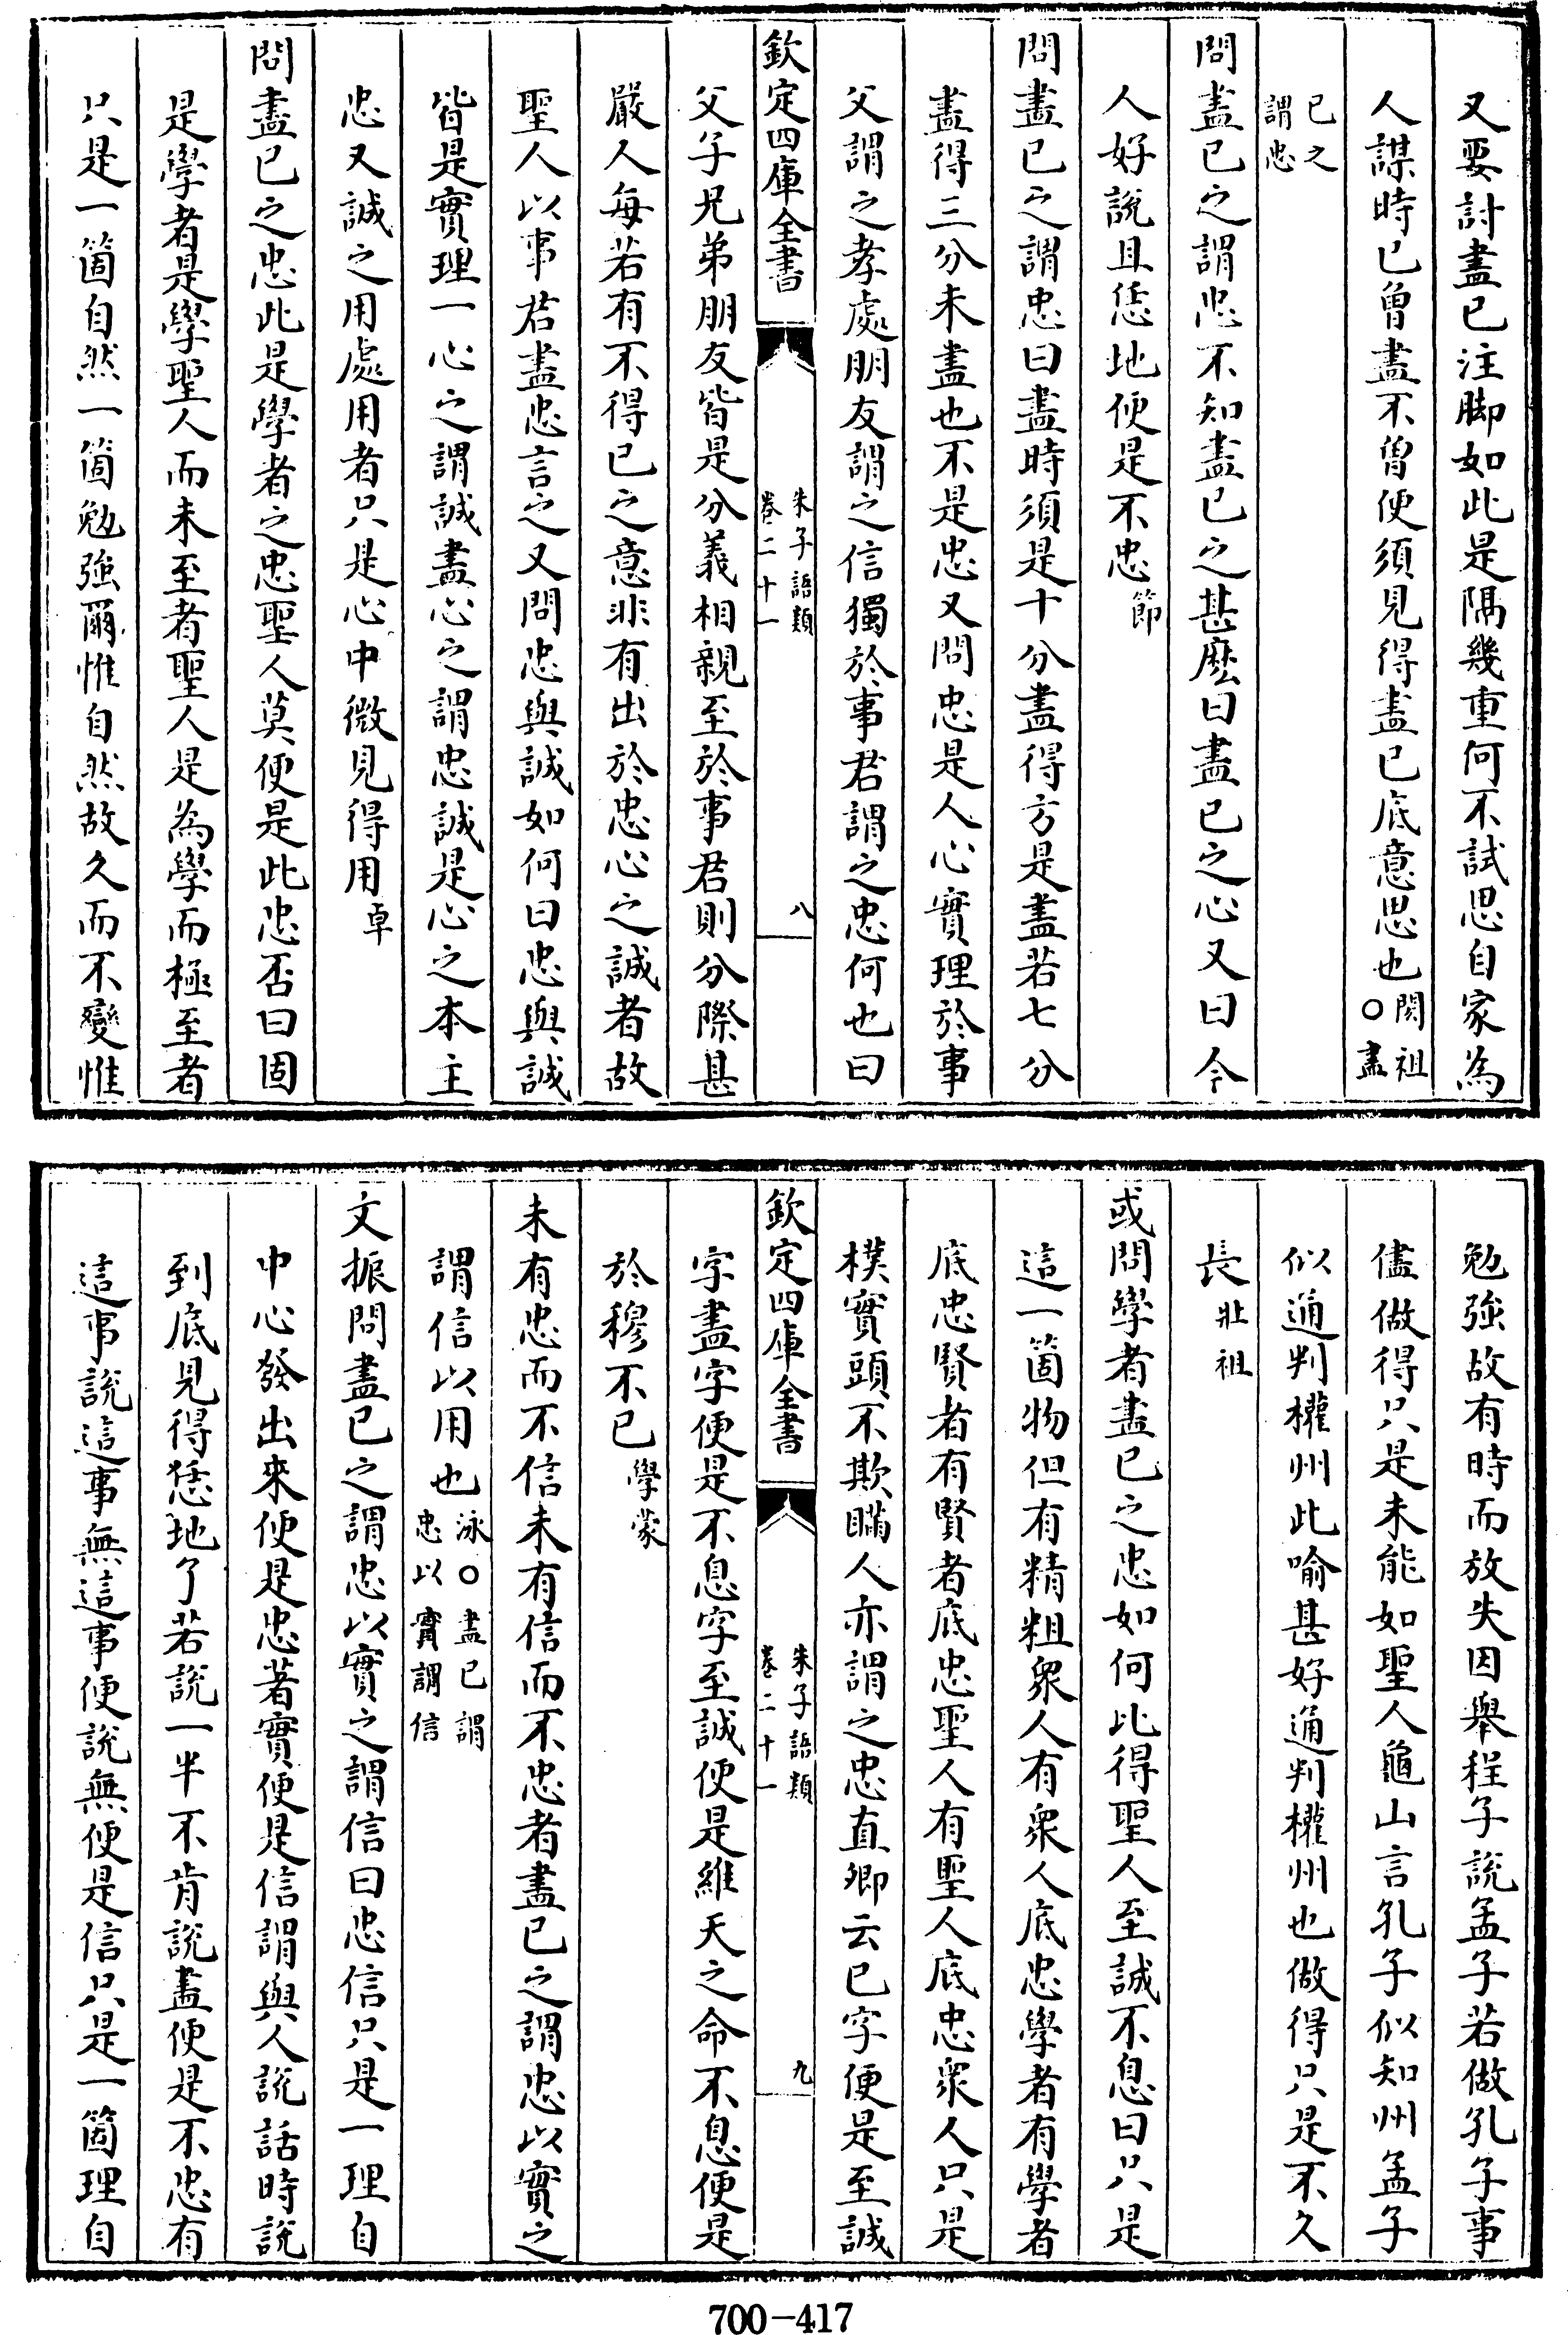 又要討盡已注脚如此是隔幾重何不試思自家為
人謀時已曾盡不曾便須見得盡已底意思也閎祖○盡
已之謂忠
問盡已之謂忠不知盡已之甚麽曰盡已之心又曰今
人好說且恁地便是不忠節
問盡已之謂忠曰盡時須是十分盡得方是盡若七分
盡得三分未盡也不是忠又問忠是人心實理於事
父謂之孝處朋友謂之信獨於事君謂之忠何也曰
欽定四庫全書
朱子語類
卷二十一
八
父子兄弟朋友皆是分義相親至於事君則分際甚
嚴人每若有不得已之意非有出於忠心之誠者故
聖人以事君盡忠言之又問忠與誠如何曰忠與誠
皆是實理一心之謂誠盡心之謂忠誠是心之本主
忠又誠之用處用者只是心中微見得用卓
問盡已之忠此是學者之忠聖人莫便是此忠否曰固
是學者是學聖人而未至者聖人是為學而極至者
只是一箇自然一箇勉強爾惟自然故久而不變惟
勉強故有時而放失因舉程子說孟子若做孔子事
儘做得只是未能如聖人龜山言孔子似知州孟子
似通判權州此喻甚好通判權州也做得只是不久
長壯祖
或問學者盡已之忠如何比得聖人至誠不息曰只是
這一箇物但有精粗衆人有衆人底忠學者有學者
底忠賢者有賢者底忠聖人有聖人底忠衆人只是
樸實頭不欺瞞人亦謂之忠直卿云已字便是至誠
欽定四庫全書
朱子語類
卷二十一
九
字盡字便是不息字至誠便是維天之命不息便是
於穆不已學蒙
未有忠而不信未有信而不忠者盡已之謂忠以實之
謂信以用也泳○盡已謂忠以實謂信
文振問盡已之謂忠以實之謂信曰忠信只是一理自
中心發出來便是忠著實便是信謂與人說話時說
到底見得恁地了若說一半不肯說盡便是不忠有
這事說這事無這事便說無便是信只是一箇理自
700-417